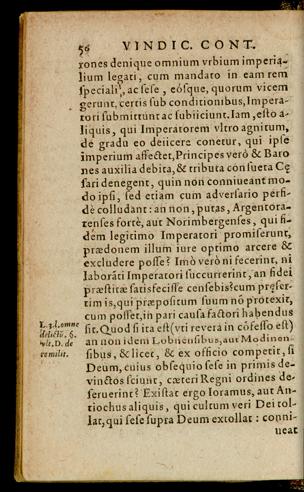 56 VINDIC. CONT.
rones denique omnium vrbium imperia-
lium legati, cum mandato in eam rem
speciali, ac sese, eósque, quorum vicem
gerunt, certis sub conditionibus, Impera-
tori submittunt ac subiiciunt. Iam, esto a-
liquis, qui Imperatorem vltro agnitum,
de gradu eo deiicere conetur, qui ipse
imperium affectet, Principes verò & Baro
nes auxilia debita, & tributa consueta Cę
sari denegent, quin non conniueant mo-
do ipsi, sed etiam cum aduersario perfi-
dè colludant: an non, putas, Argentora-
tenses fortè, aut Norimbergenses, qui fi-
dem legitimo Imperatori promiserunt,
prædonem illum iure optimo arcere &
excludere posse? Imò verò ni fecerint, ni
laborãti Imperatori succurrerint, an fidei
præstitæ satisfecisse censebis? cum pręser-
tim is, qui præpositum suum nõ protexit,
cum posset, in pari causa factori habendus
sit. Quod si ita est (vti reuera in cõfesso est)
an non idem Lobnensibus, aut Modinen-
sibus, & licet, & ex officio competit, si
Deum, cuius obsequio sese in primis de-
uinctos sciunt, cæteri Regni ordines de-
seruerint? Existat ergo Ioramus, aut An-
tiochus aliquis, qui cultum veri Dei tol-
lat, qui sese supra Deum extollat: conni-
ueat
L. 3. l. omne
delictũ. §.
vlt. D. de
re milit.